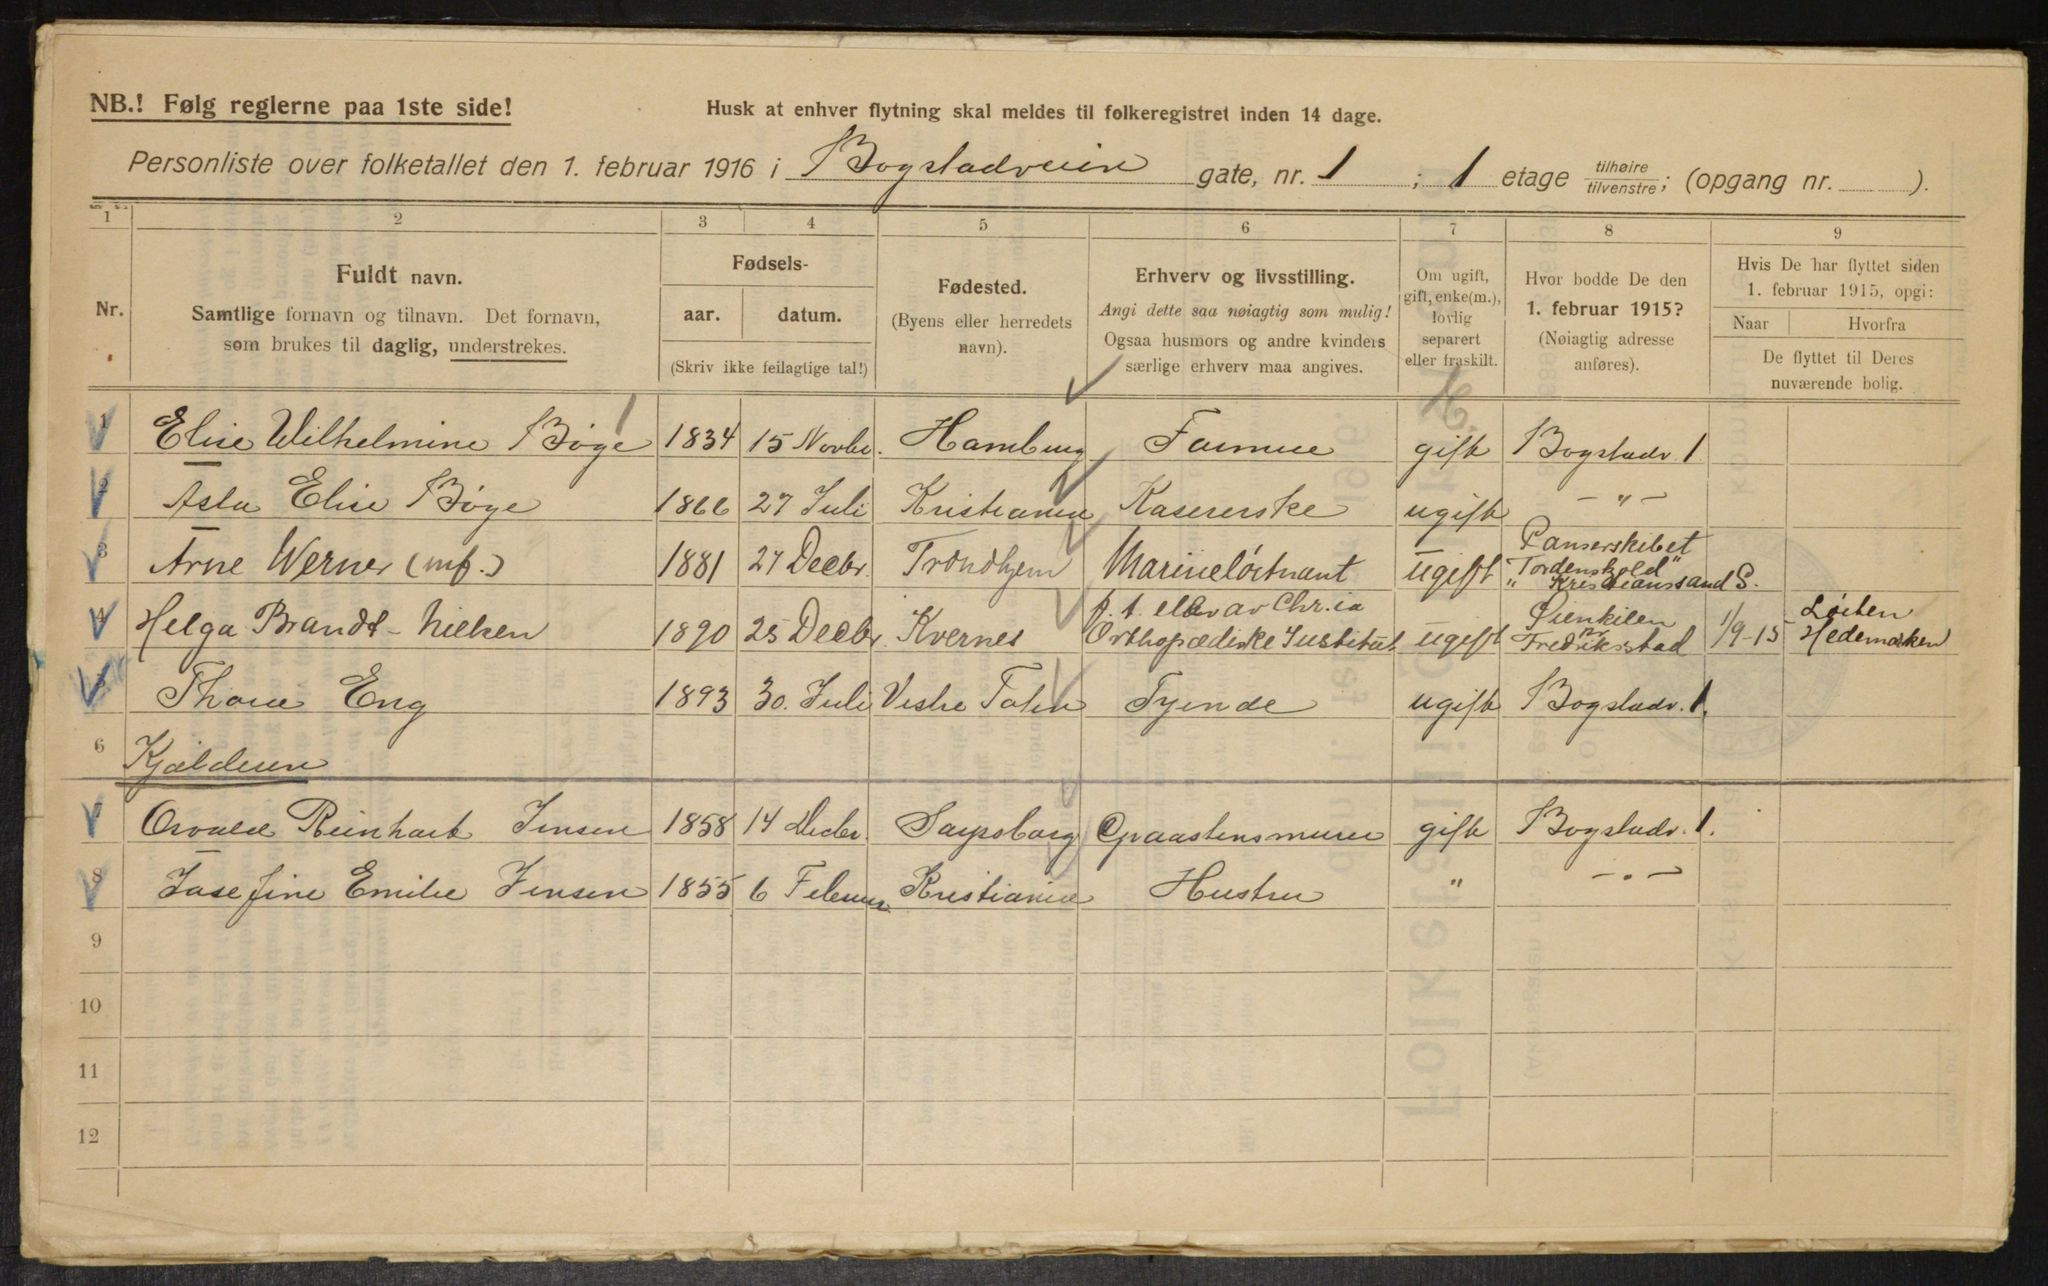 NB.! Følg reglerne paa 1ste side!
Husk at enhver flytning skal meldes til folkeregistret inden 14 dage.
Personliste over folketallet den 1. februar 1916 i Bogstadveien gate, nr. 1 ; 1 etage tilhøire/tilvenstre; (opgang nr. ).
1 2 3 4 5 6 7 8 9
Nr.
Fuldt navn.
Samtlige fornavn og tilnavn. Det fornavn,
som brukes til daglig, understrekes.
Fødsels-
aar. datum.
(Skriv ikke feilagtige tal!)
Fødested.
(Byens eller herredets
navn).
Erhverv og livsstilling.
Angi dette saa nøiagtig som mulig!
Ogsaa husmors og andre kvinders
særlige erhverv maa angives.
Om ugift,
gift, enke(m.),
lovlig
separert
eller fraskilt.
Hvor bodde De den
1. februar 1915?
(Nøiagtig adresse
anføres).
Hvis De har flyttet siden
1. februar 1915, opgi:
Naar Hvorfra
De flyttet til Deres
nuværende bolig.
1 Elise Wilhelmine Bøge 1834 15 Novbr. Hamburg gift Bogstadv. 1
2 Asta Elise Bøge 1866 27 Juli Kristiania Kasererske ugift — " —
3 Arne Werner (mf.) 1881 27 Decbr. Trondhjem Marineløitnant ugift Panserskibet
"Tordenskold"
Kristianssand S.
4 Helga Brandt-Nielsen 1890 25 Decbr. Kvernes p. t. elev av Chr.ia
Orthopædiske Institut ugift Øienkilen
pr. Fredriksstad 1/9-15 Løiten
Hedemarken
5 Eng 1893 30. Juli Vestre Toten Tjende ugift Bogstadv. 1.
6 Kjælderen
7 Osvald Reinhart Jensen 1858 14 Decbr. Sarpsborg Graastensmurer gift Bogstadv. 1.
8 Josefine Emilie Jensen 1855 6 Februar Kristiania Hustru " — " —
9
10
11
12